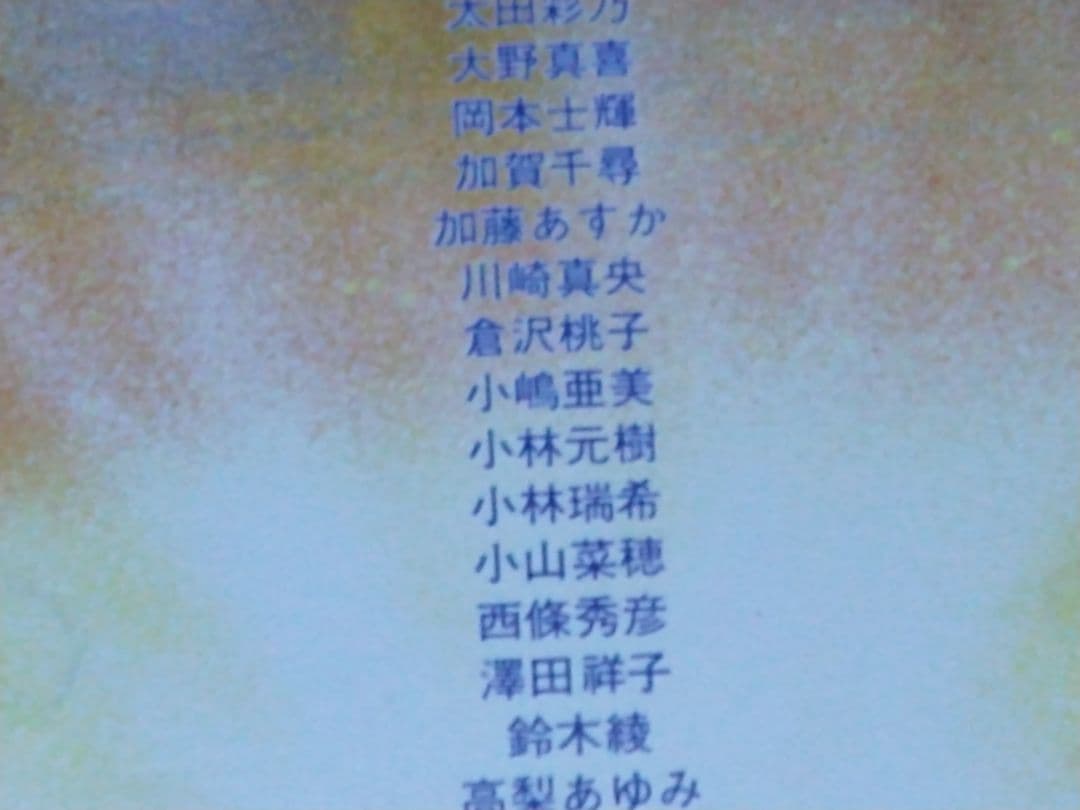 太田彩乃
大野真喜
岡本士輝
加賀千尋
加藤あすか
川崎真央
倉沢桃子
小嶋亜美
小林元樹
小林瑞希
小山菜穂
西條秀彦
澤田祥子
鈴木綾
高梨あゆみ